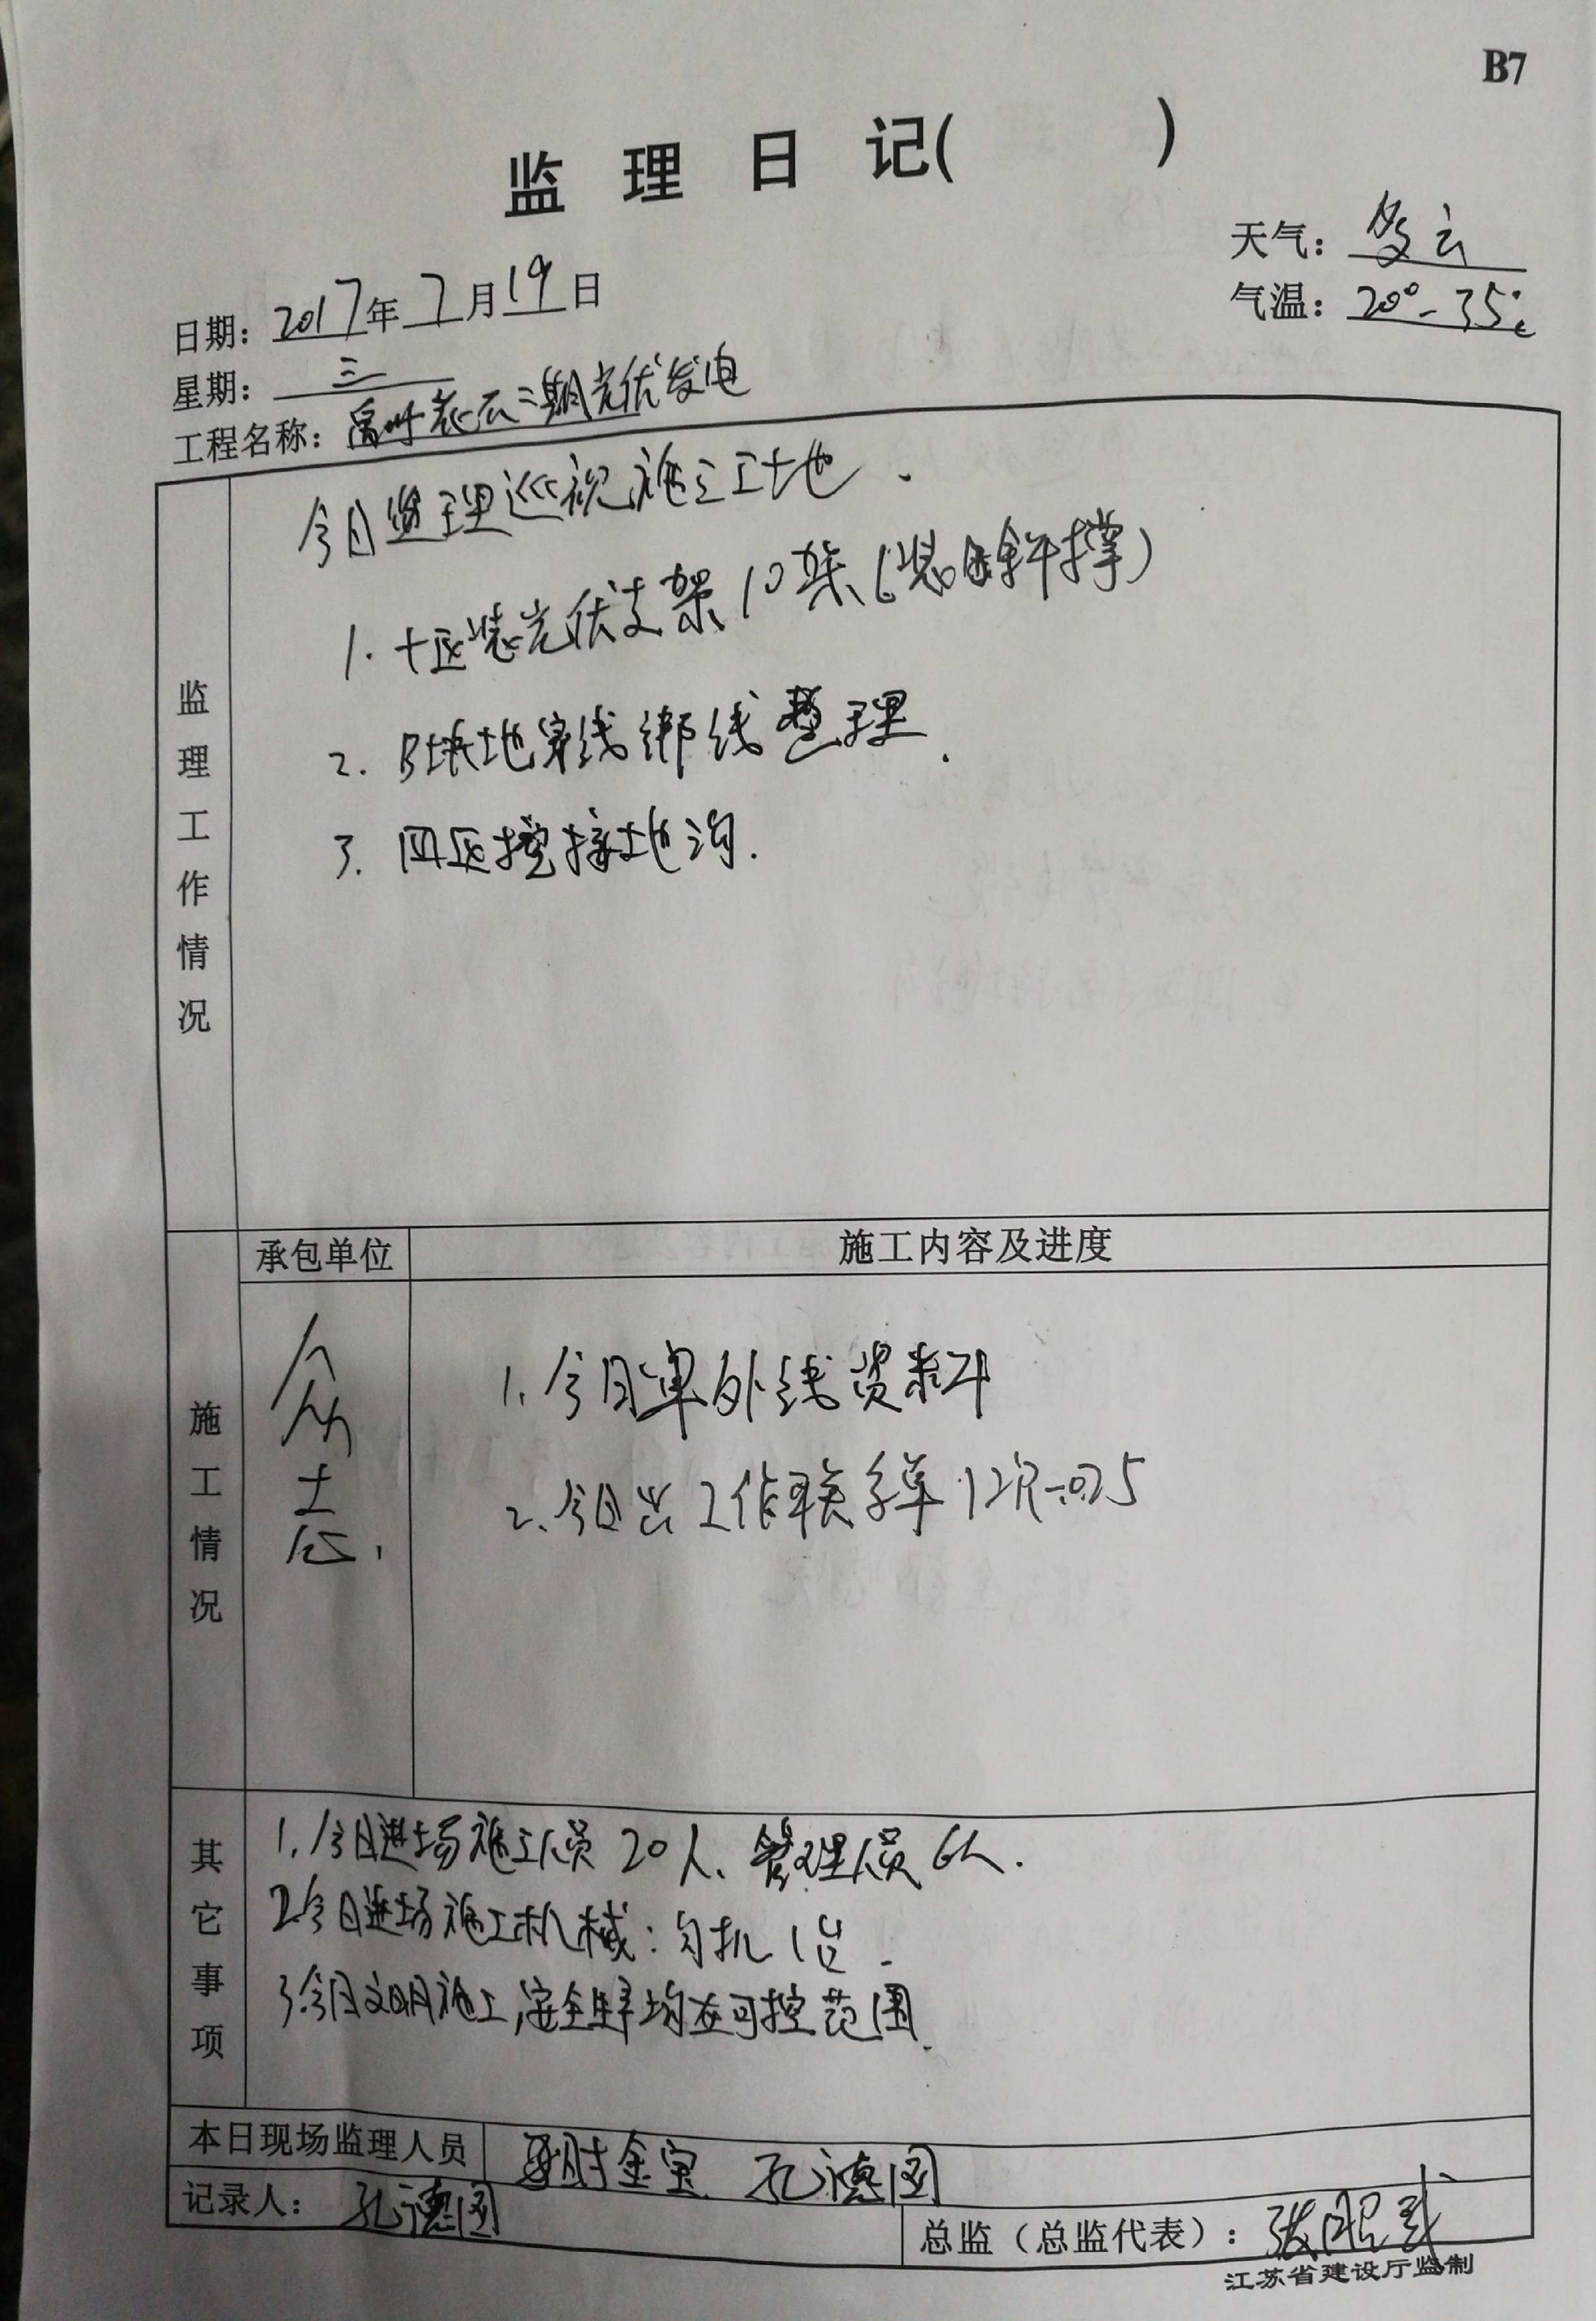 B7
监 理 日 记(        )
天气：多云
气温：20°-35℃
日期：2017年7月19日
星期：三
工程名称：禹州 二期光伏发电
监理工作情况
今日监理巡视施工工地.
1. 十区装光伏支架10架(装 斜撑)
2. B块地穿线绑线整理.
3. 四区挖接地沟.
承包单位
施工内容及进度
施工情况
众志.
1. 今日 外线资料
2. 今日出工作联系单
其它事项
1. 今日进场施工人员20人、管理人员6人.
2. 今日进场施工机械：勾机1台.
3. 今日文明施工,安全生产均在可控范围.
本日现场监理人员
金宝 孔德图
记录人：孔德图
总监（总监代表）：张昭武
江苏省建设厅监制